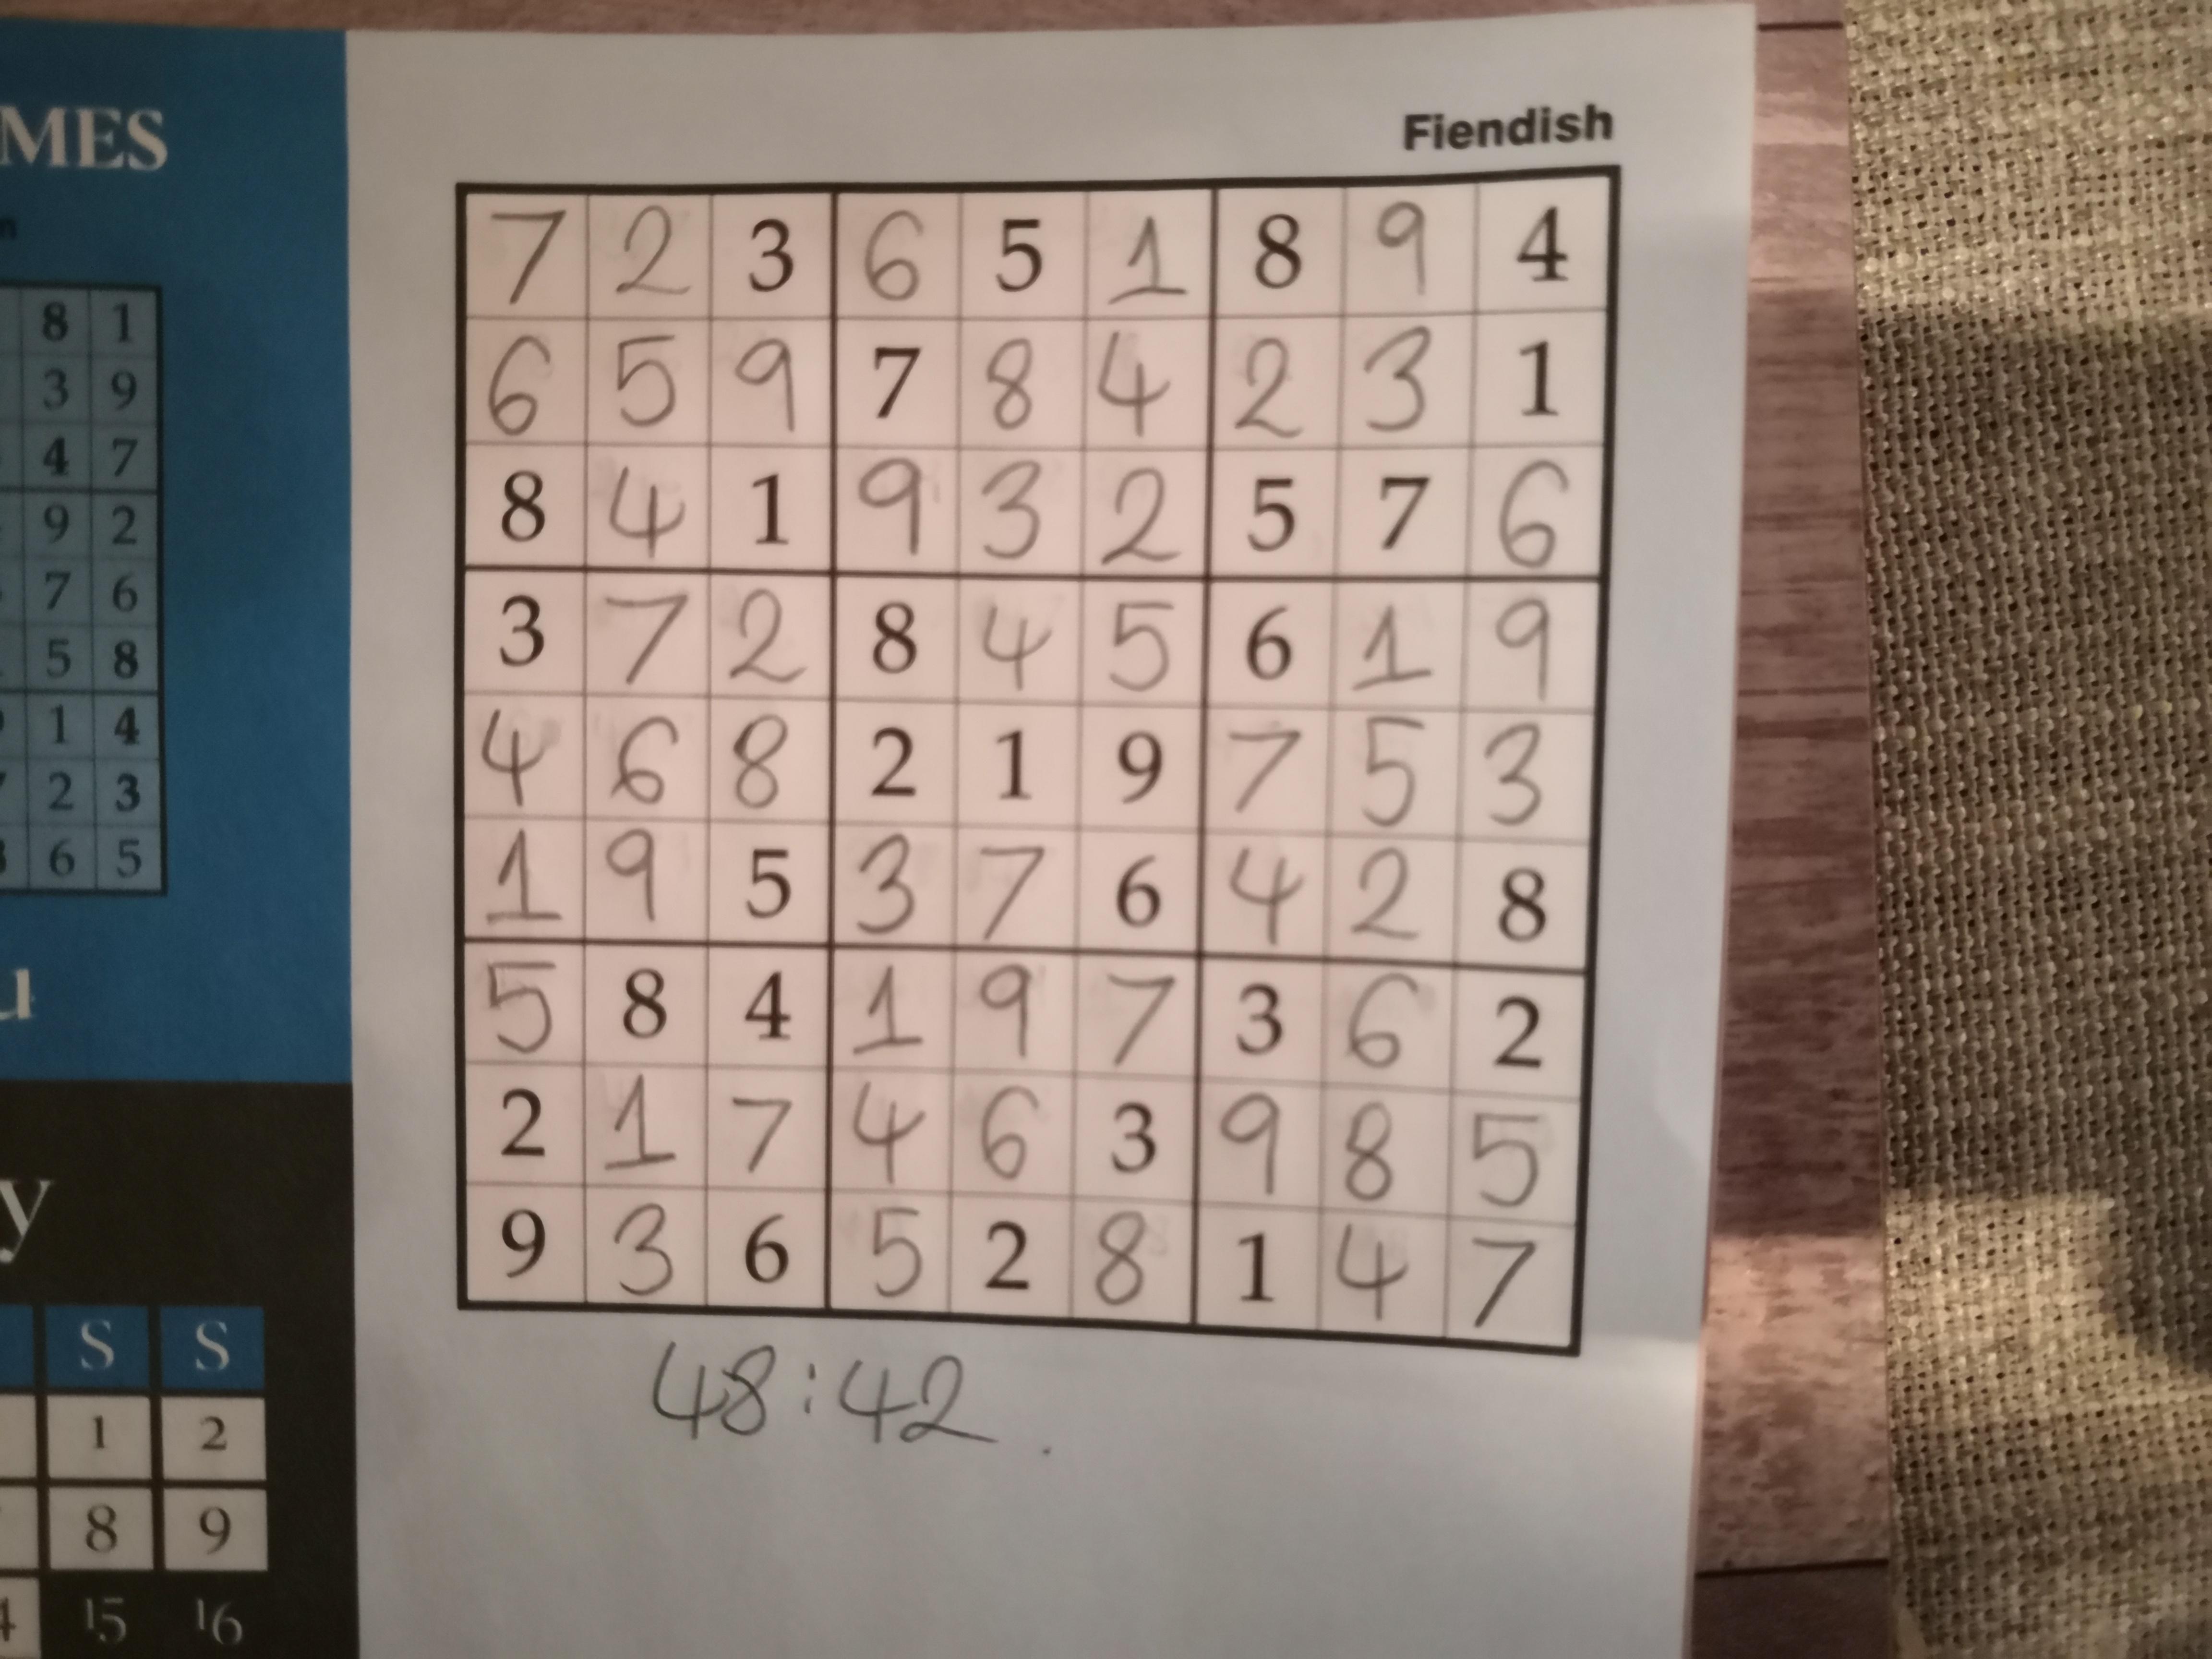 MES
Fiendish
8 1
3 9
4 7
9 2
7 6
5 8
1 4
2 3
6 5
u
y
S S
1 2
8 9
4 15 16
7 2 3 6 5 1 8 9 4
6 5 9 7 8 4 2 3 1
8 4 1 9 3 2 5 7 6
3 7 2 8 4 5 6 1 9
4 6 8 2 1 9 7 5 3
1 9 5 3 7 6 4 2 8
5 8 4 1 9 7 3 6 2
2 1 7 4 6 3 9 8 5
9 3 6 5 2 8 1 4 7
48:42.